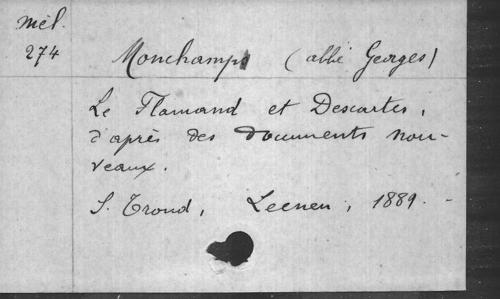 Mél.
274
Monchamps (abbé Georges)
Le Flamand et Descartes,
d'après des documents nou-
veaux.
S. Trond, Leenen, 1889.-